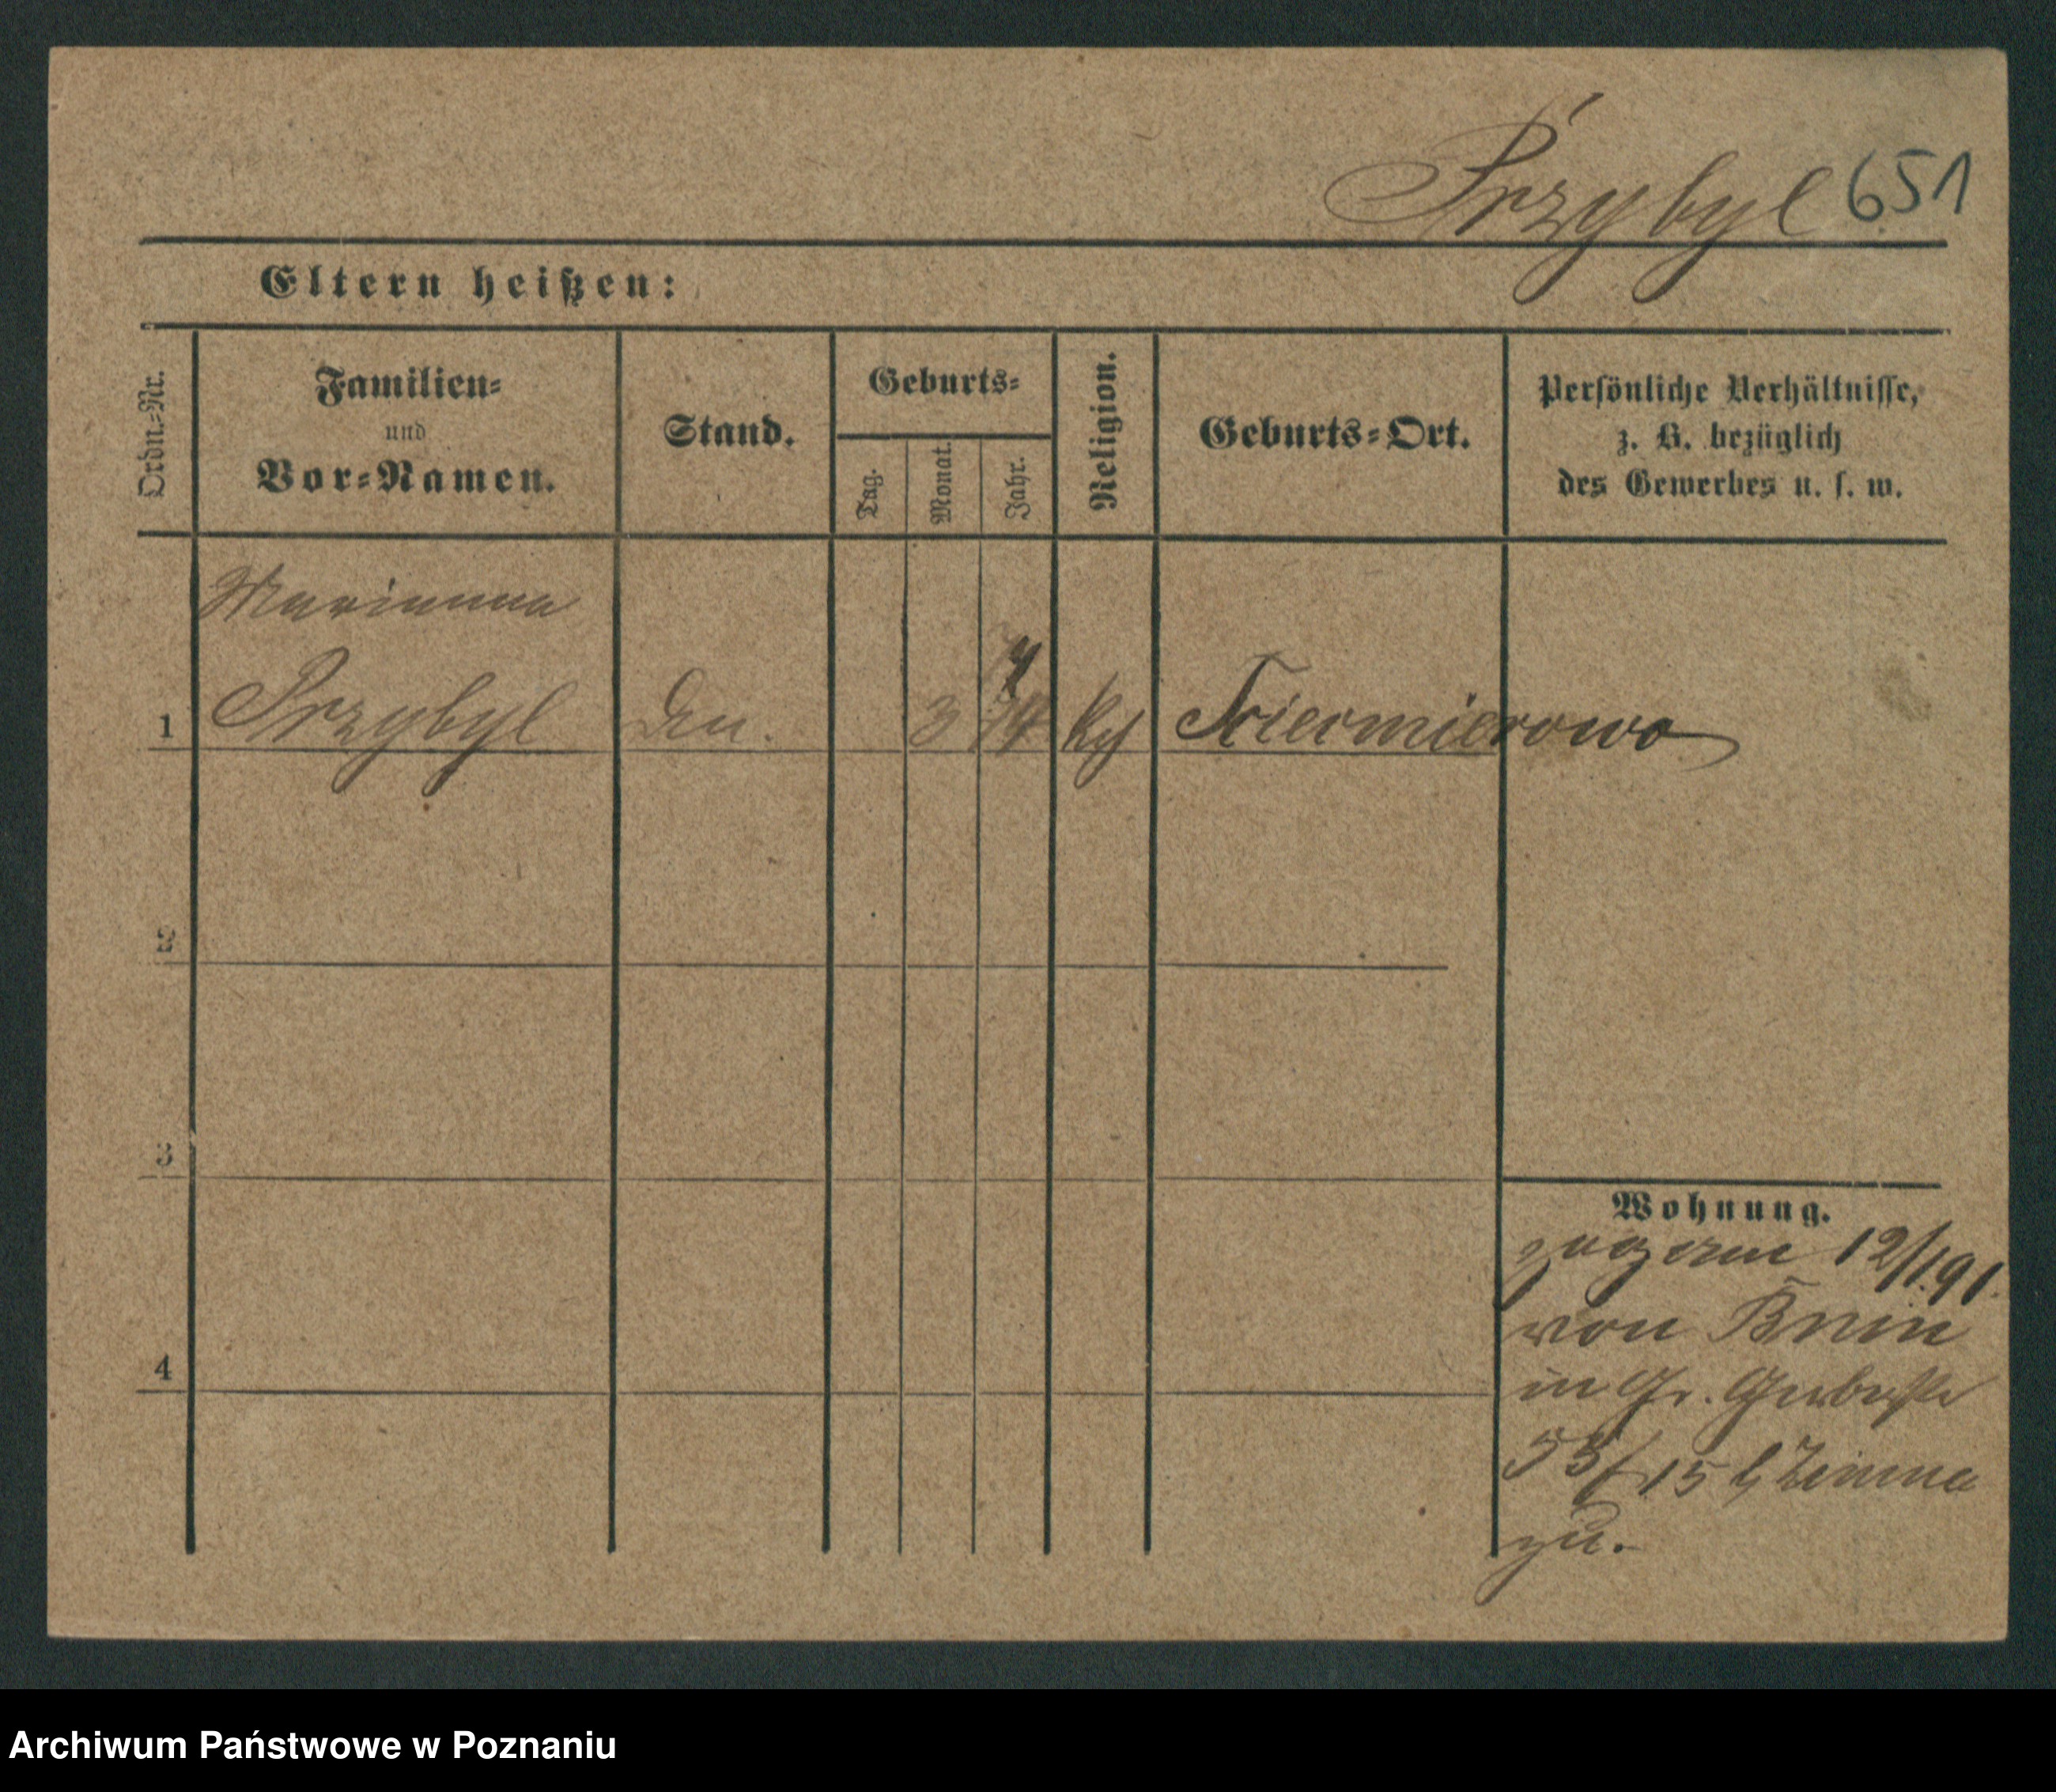 Przybyl 651
Eltern heißen:
Ordn.=Nr.
Familien=
und
Vor=Namen.
Stand.
Geburts=
Tag.
Monat.
Jahr.
Religion.
Geburts=Ort.
Persönliche Verhältnisse,
z. B. bezüglich
des Gewerbes u. s. w.
Marianna
1 Przybyl 3 74 kth
2
3
4
Wohnung.
zog am 12/1.91.
von Bnin
in Gr. Gerberstr
53/15 b, Zimma
zu.
Archiwum Państwowe w Poznaniu